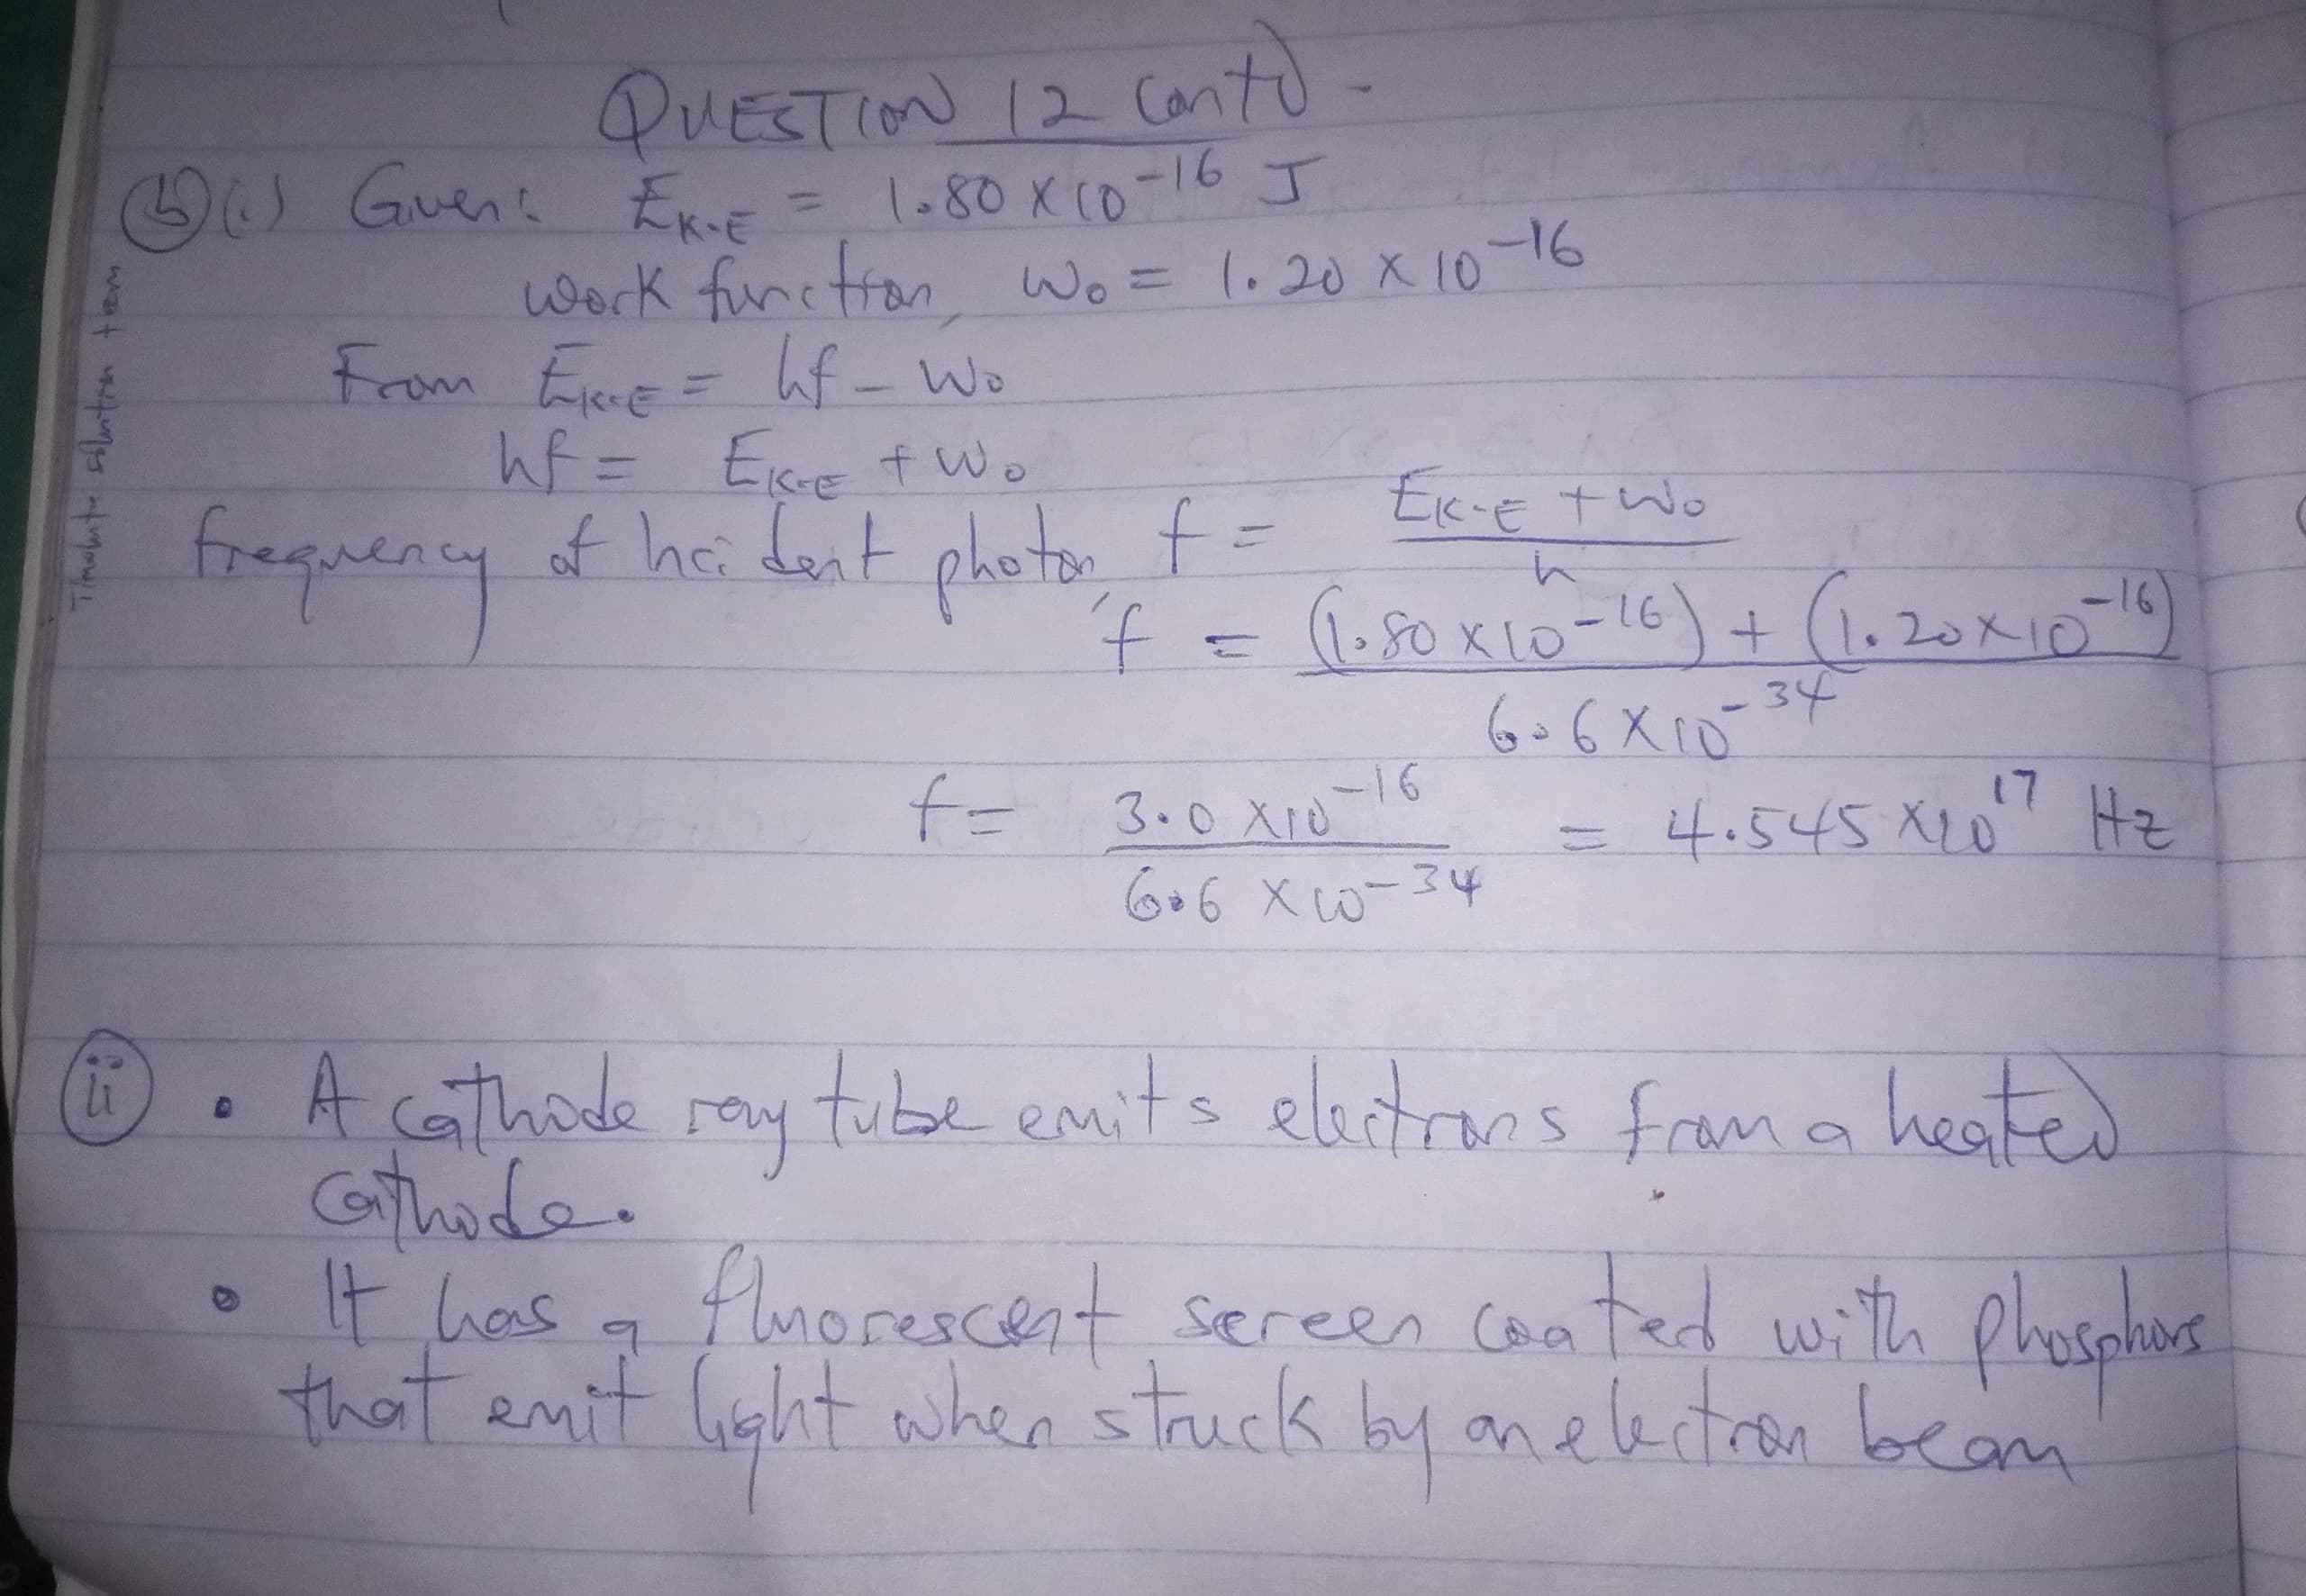 QUESTION 12 Contd -
(b)(i) Given: E_K.E = 1.80 x 10^-16 J
work function, W₀ = 1.20 x 10^-16
From E_K.E = hf - W₀
hf = E_K.E + W₀
frequency of incident photon, f = (E_K.E + W₀) / h
f = ((1.80 x 10^-16) + (1.20 x 10^-16)) / (6.6 x 10^-34)
f = (3.0 x 10^-16) / (6.6 x 10^-34) = 4.545 x 10^17 Hz
(ii) • A cathode ray tube emits electrons from a heated
cathode.
• It has a fluorescent screen coated with phosphors
that emit light when struck by an electron beam
solution team